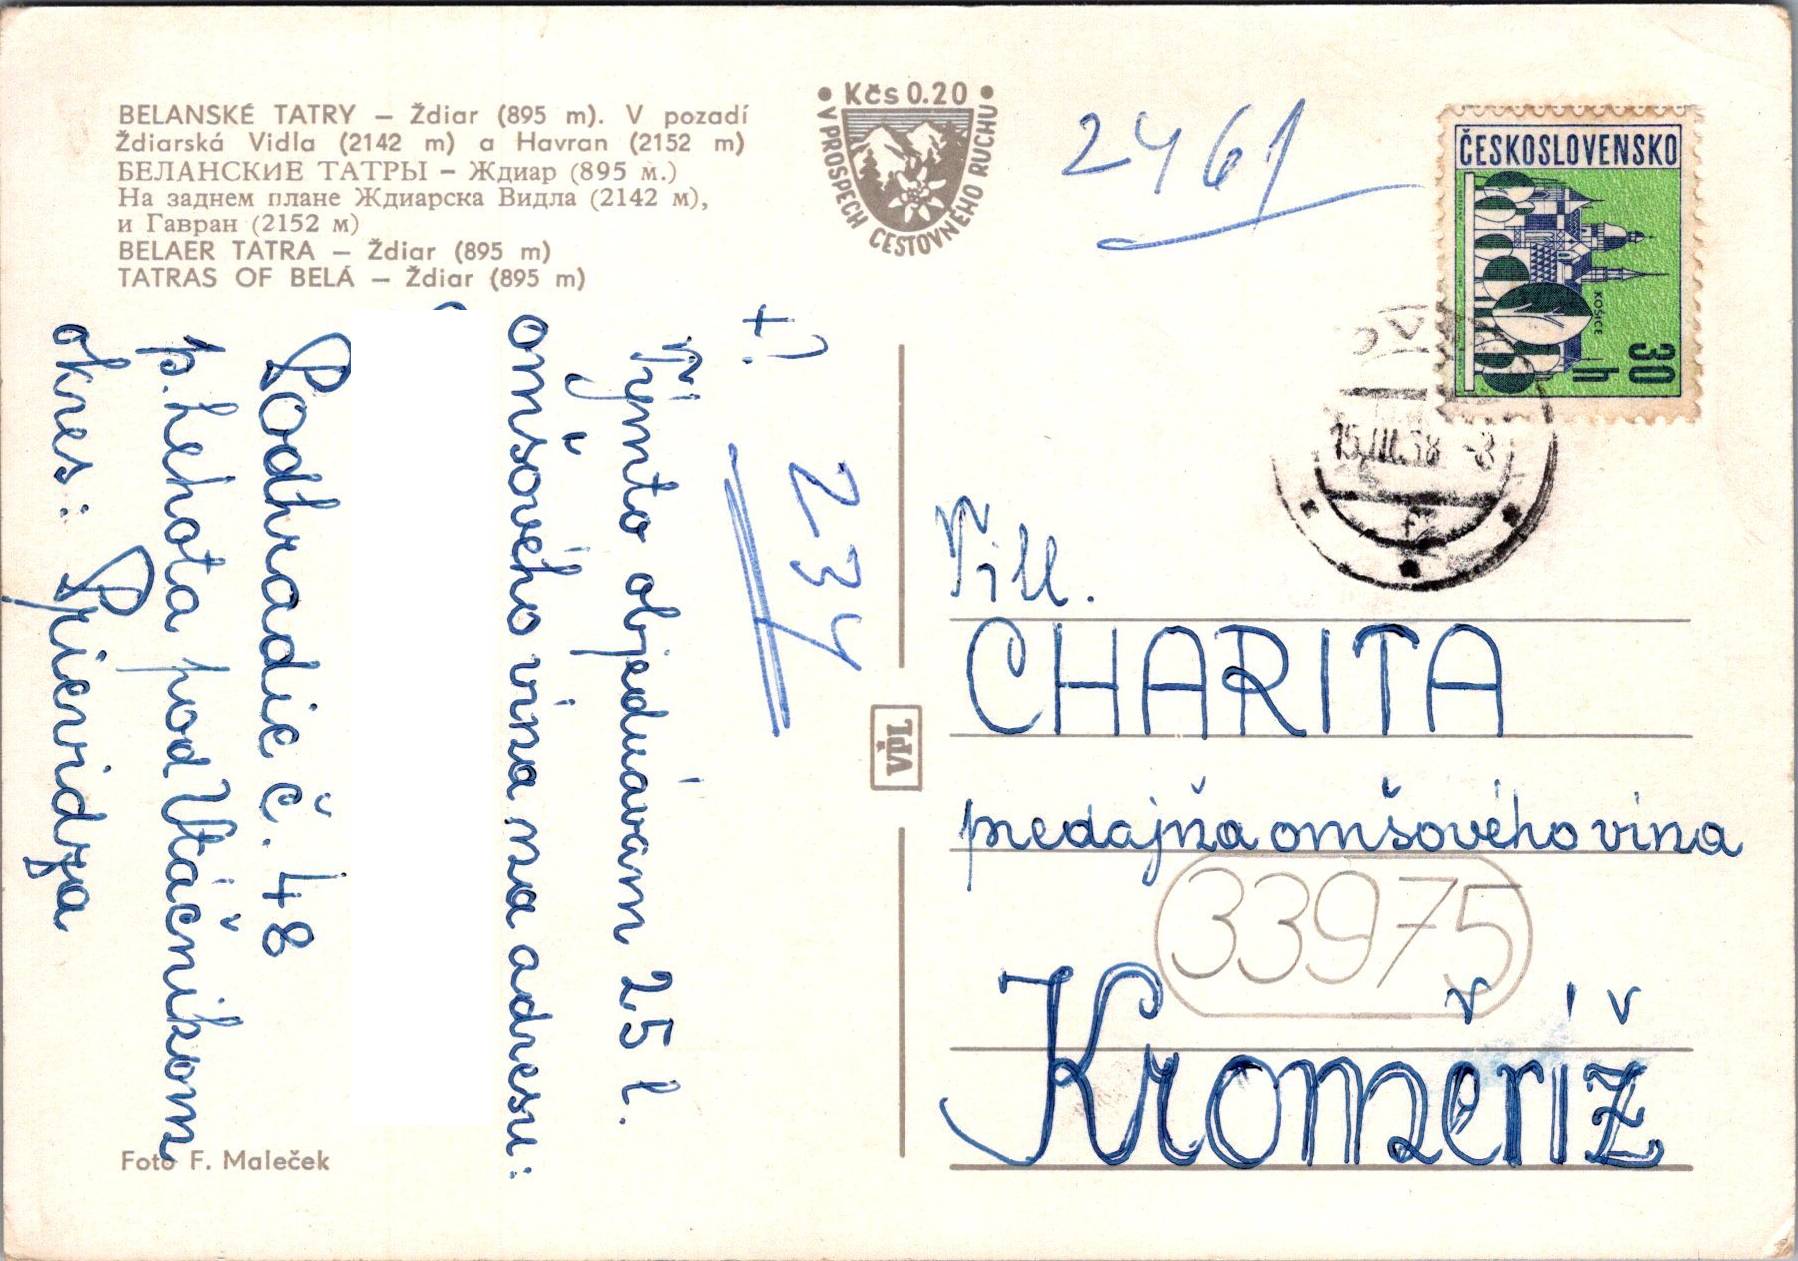 BELANSKÉ TATRY – Ždiar (895 m). V pozadí
Ždiarská Vidla (2142 m) a Havran (2152 m)
БЕЛАНСКИЕ ТАТРЫ – Ждиар (895 м.)
На заднем плане Ждиарска Видла (2142 м),
и Гавран (2152 м)
BELAER TATRA – Ždiar (895 m)
TATRAS OF BELÁ – Ždiar (895 m)
• Kčs 0.20 •
V PROSPECH CESTOVNÉHO RUCHU
2461
ČESKOSLOVENSKO
KOŠICE
30 h
15.III.68 -8
234
Týmto objednávam 25 l.
omšového vína na adresu:
Podhradie č. 48
p. Lehota pod Vtáčnikom
okres: Prievidza
VTL
Till.
CHARITA
predajňa omšového vína
33975
Kroměříž
Foto F. Maleček